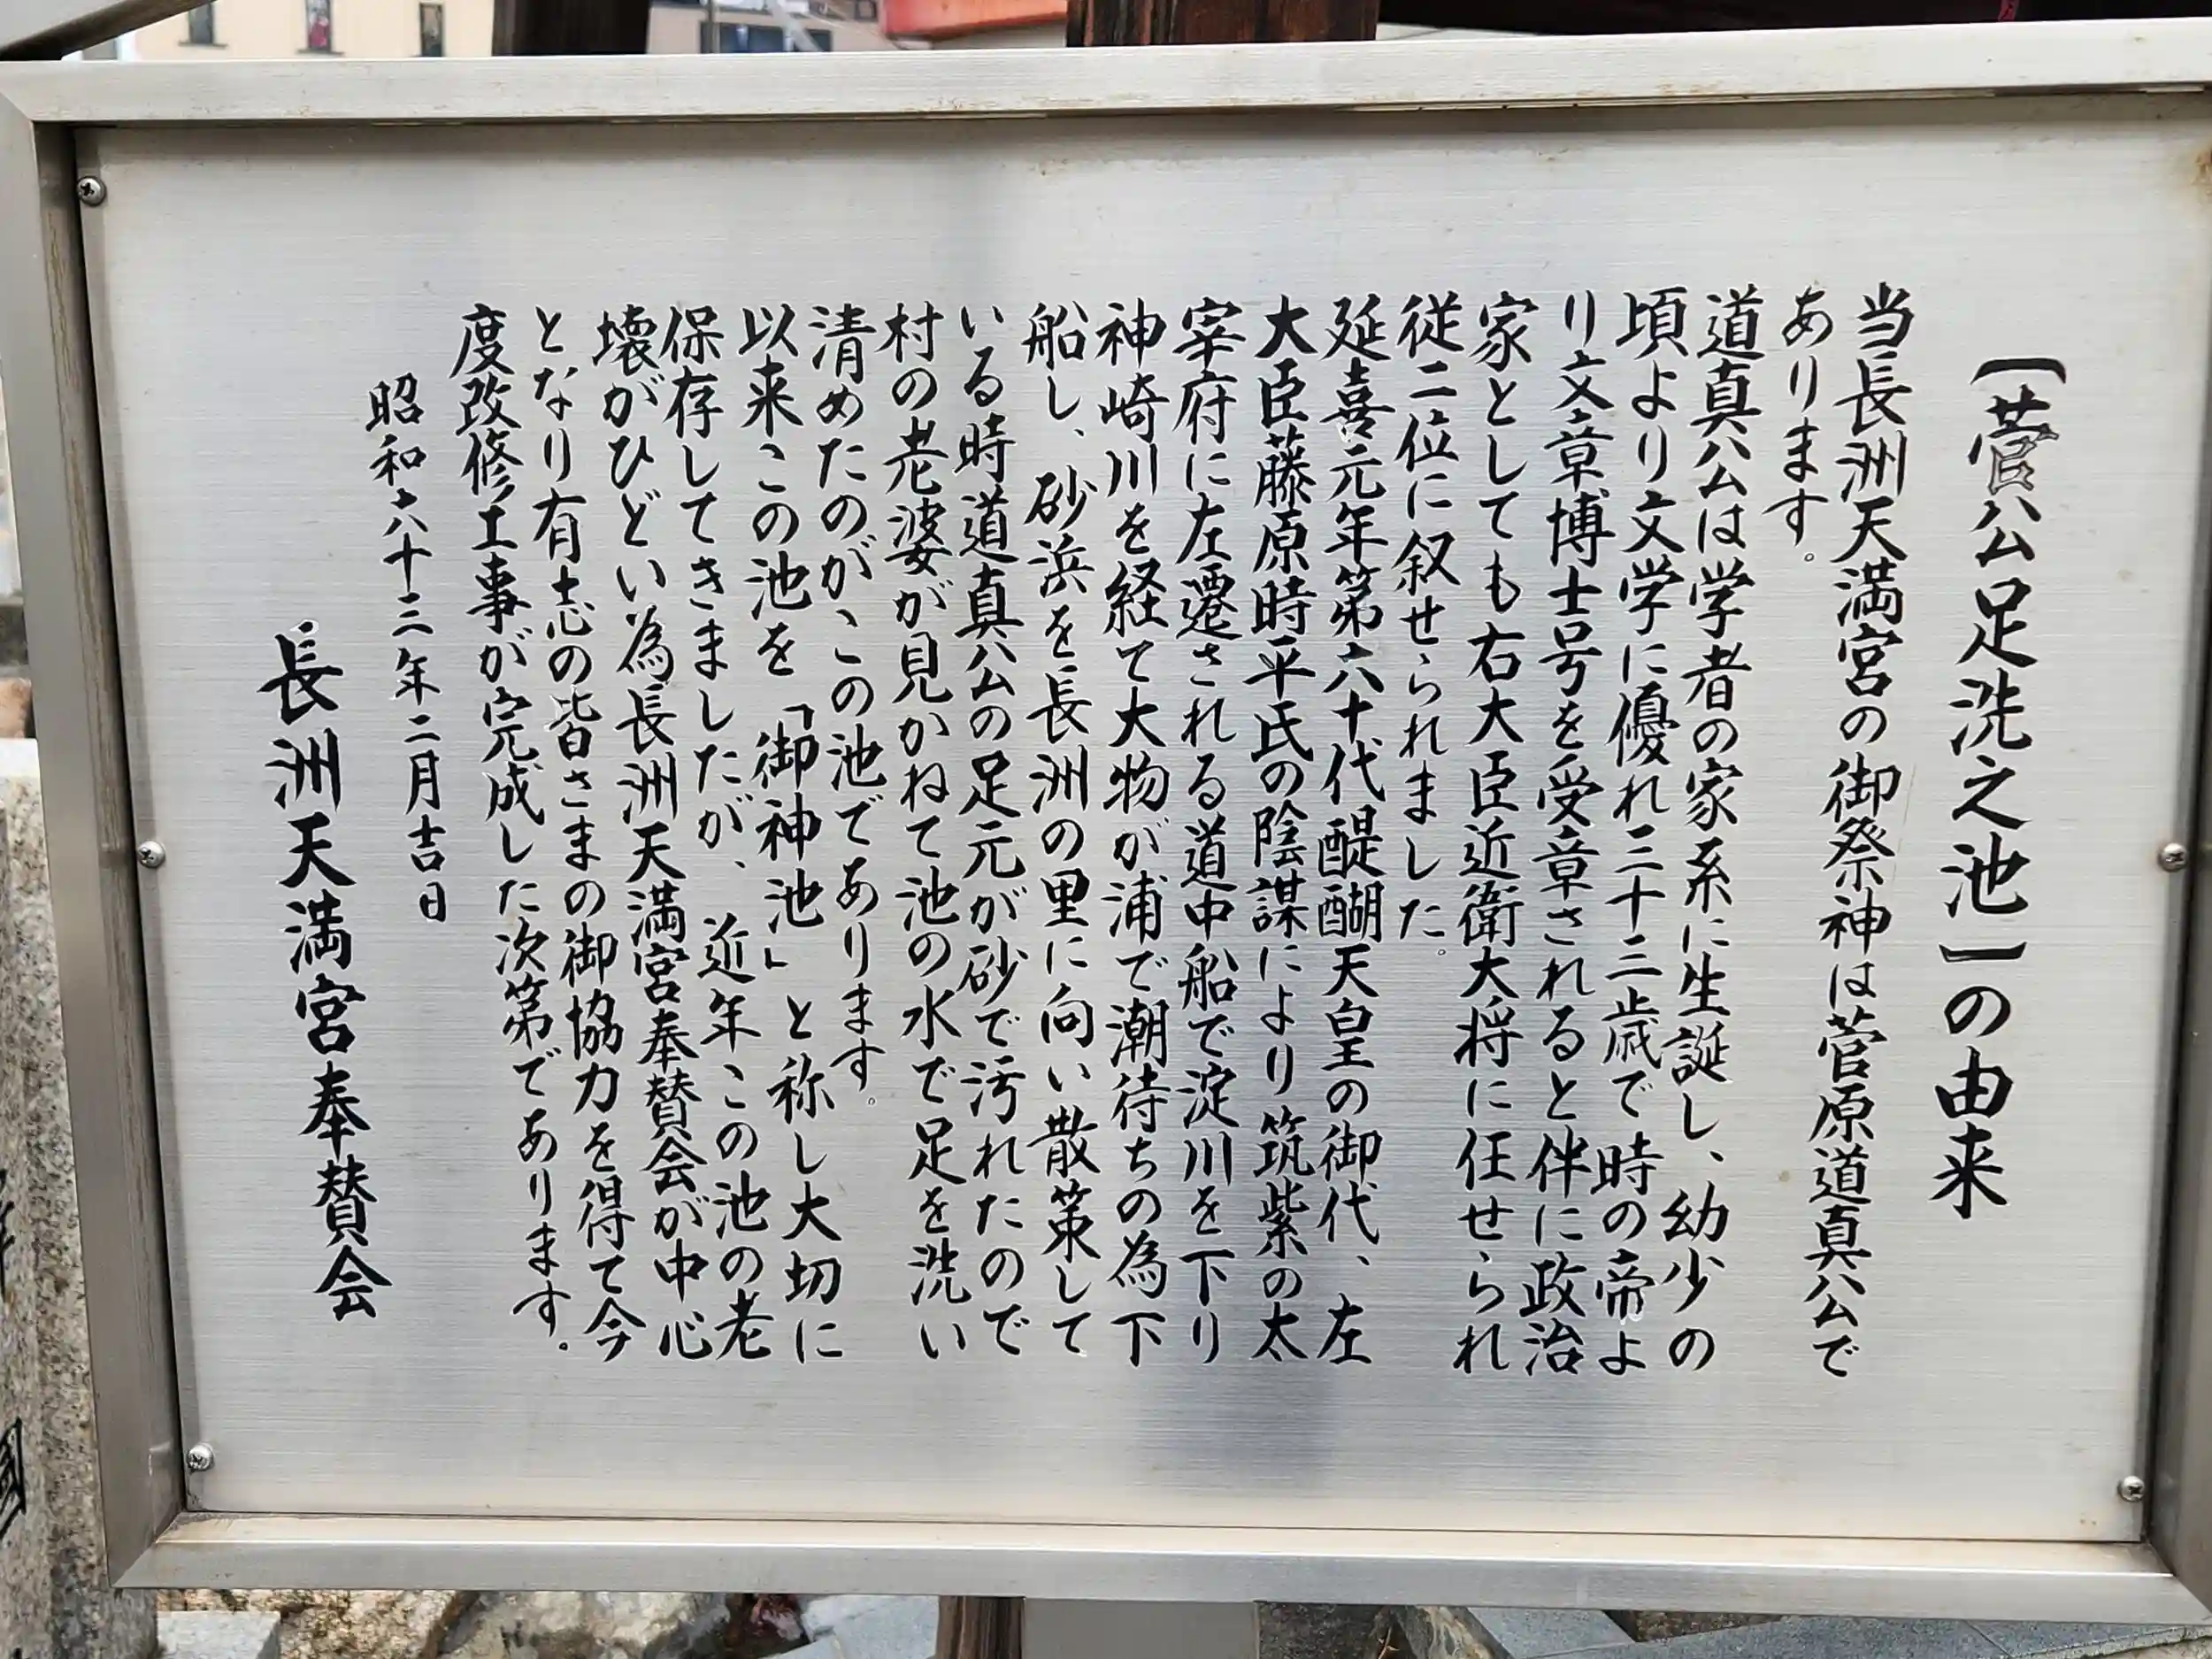 【菅公足洗之池】の由来
当長洲天満宮の御祭神は菅原道真公で
あります。
道真公は学者の家系に生誕し、幼少の
頃より文学に優れ三十三歳で時の帝よ
り文章博士号を受章されると伴に政治
家としても右大臣近衛大将に任せられ
従二位に叙せられました。
延喜元年第六十代醍醐天皇の御代、左
大臣藤原時平氏の陰謀により筑紫の太
宰府に左遷される道中船で淀川を下り
神崎川を経て大物が浦で潮待ちの為下
船し、砂浜を長洲の里に向い散策して
いる時道真公の足元が砂で汚れたので
村の老婆が見かねて池の水で足を洗い
清めたのがこの池であります。
以来この池を「御神池」と称し大切に
保存してきましたが、近年この池の老
壊がひどい為長洲天満宮奉賛会が中心
となり有志の皆さまの御協力を得て今
度改修工事が完成した次第であります。
昭和六十三年二月吉日
長洲天満宮奉賛会